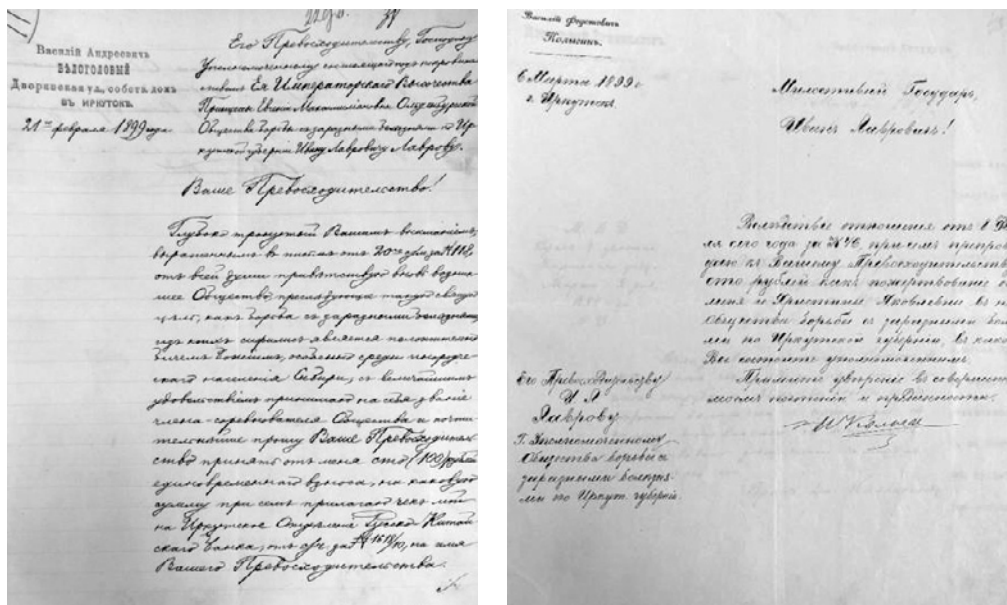 Василій Андреевичъ
БѢЛОГОЛОВЫЙ
Дворянская ул., собств. домъ
ВЪ ИРКУТСКѢ.
21го февраля 1899 года
Его Превосходительству, Господину
Уполномоченному состоящаго подъ покрови-
тельствомъ Ея Императорскаго Высочества
Принцессы Евгеніи Максимиліановны Ольденбургской
Общества борьбы съ заразными болѣзнями по Ир-
кутской губерніи Ивану Лавровичу Лаврову.
Ваше Превосходительство!
Глубоко тронутый Вашимъ вниманіемъ,
выраженнымъ въ письмѣ отъ 20го за № 118,
отъ всей души привѣтствую вновь
Общество, преслѣдующее такую
цѣль, какъ борьба съ заразными болѣзнями,
сифилисъ является
особенно среди инородче-
скаго населенія Сибири, съ величайшимъ
удовольствіемъ принимаю на себя званіе
члена-соревнователя Общества и почти-
тельнѣйше прошу Ваше Превосходитель-
ство принять отъ меня сто (100) рублей
единовременнаго взноса, на каковую
сумму при семъ прилагаю чекъ мой
на Иркутское Отдѣленіе Русско-Китай-
скаго банка, за на имя
Вашего Превосходительства.
Василій Федотовичъ
6 Марта 1899 г.
г. Иркутскъ.
Милостивый Государь,
Иванъ Лавровичъ!
Вслѣдствіе отношенія отъ
сего года за № 46, при семъ препро-
къ Вашему Превосходительству
сто рублей какъ пожертвованіе
меня и Христины Яковлевны
Общества борьбы съ заразными
по Иркутской губерніи,
Вы состоите уполномоченнымъ.
Примите увѣреніе въ совершенномъ
моемъ почтеніи и преданности.
Его Превосходительству
И. Л.
Лаврову
Г. Уполномоченному
Общества борьбы съ
заразными болѣзня-
ми по Иркут. губерніи.